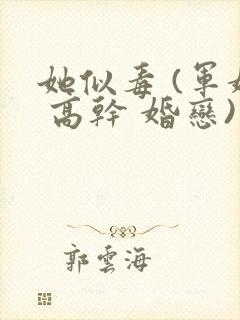 她似毒(軍
高幹 婚戀)
郭雲海